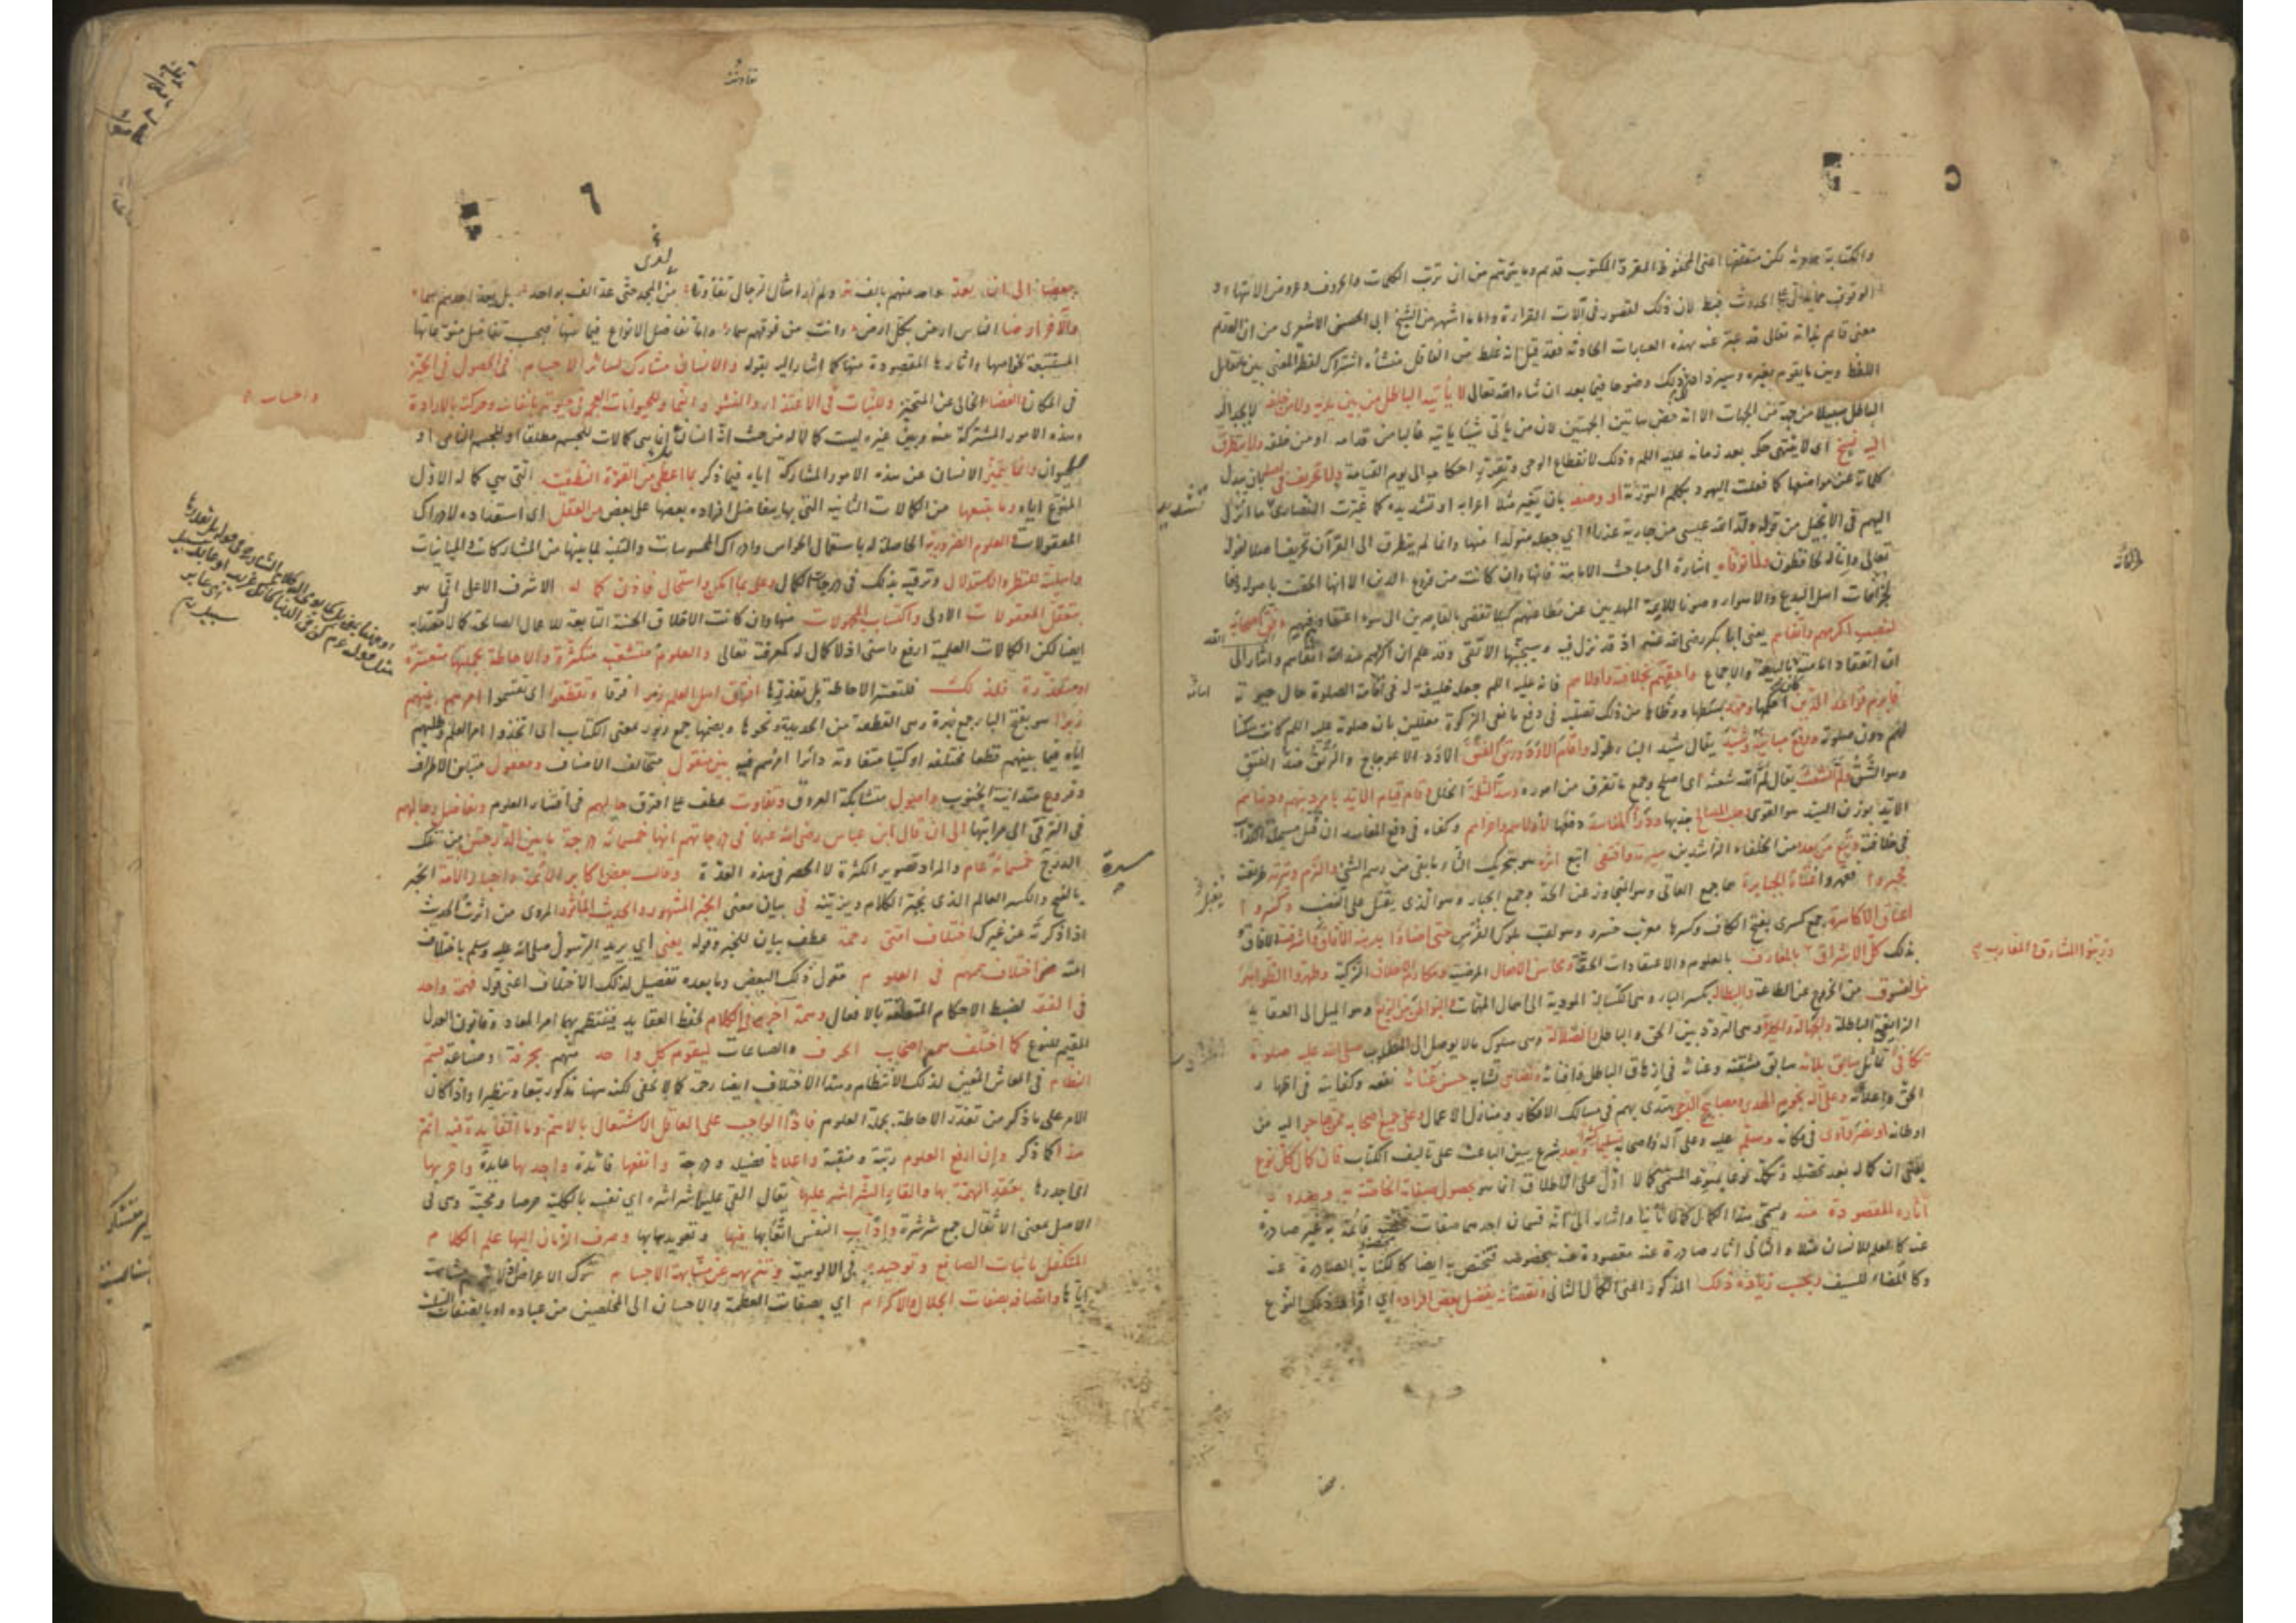 والكتابة حادثة لكن متعلقها اعنى المحفوظ المقروّ المكتوب قديم وما يتوهم من ان ترتب الكلمات والحروف وعروض الانتهاء و
الوقوف مما يدل على الحدوث فبط لان ذلك لقصور فى آلات القراءة واما ما اشتهر من الشيخ ابى الحسن الاشعرى من ان القديم
معنى قائم بذاته تعالى قد عبّر عنه بهذه العبارات الحادثة فقد قيل انه غلط من الناقل منشأه اشتراك لفظ المعنى بين ما يقابل
اللفظ وبين ما يقوم بغيره وسيزداد ذلك وضوحا فيما بعد ان شاء الله تعالى لا يأتيه الباطل من بين يديه ولا من خلفه لا يجد اليه
الباطل سبيلا من جهة من الجهات الا انه خص هاتين الجهتين لان من يأتى شيئا يأتيه غالبا من قدامه او من خلفه ولا يتطرق
اليه نسخ اى لا ينتهى حكمه بعد زمانه عليه السلام وذلك لانقطاع الوحى وتقرر احكامه الى يوم القيامة ولا تحريف فى اصله بان يبدل
كلماته عن مواضعها كما فعلت اليهود بكلم التورية او وصفه بان يغير مثلا اعرابه او تشديده كما غيرت النصارى ما انزل
اليهم فى الانجيل من قوله ولّد الله عيسى من جارية عذراء اي جعله متولدا منها وانما لم يتطرق الى القرآن تحريف اصلا لقوله
تعالى وانا له لحافظون ولما توفاه اشارة الى مباحث الامامة فانها وان كانت من فروع الدين الا انها الحقت باصوله دفعا
لخرافات اهل البدع والاهواء وصونا للائمة المهديين عن مطاعنهم كيلا تفضى بالقاصرين الى سوء اعتقاد فيهم وفق اصحابه
لنصب اكرمهم واتقاهم يعنى ابا بكر رضى الله عنه اذ قد نزل فيه وسيجنبها الاتقى وقد علم ان اكرمهم عند الله اتقاهم واشار الى
ان انعقاد امامته بالبيعة والاجماع واحقهم بخلافته واولاهم فانه عليه السلام جعله خليفة له فى اقامة الصلوة حال حيوته
فابرم قواعد الدين احكمها ومهد بسطها ووطأها من ذلك تصلبه فى دفع مانعى الزكوة معللين بان صلوته عليه السلام كانت سكنا
لهم دون صلوته ورفع مبانيه وشيد يقال شيد البناء طوله واقام الاود ورتق الفتق الاود الاعوجاج والرتق ضد الفتق
وهو الشق ولمّ الشعث يقال لمّ الله شعثه اى اصلح وجمع ما تفرق من اموره وسدّ الثلمة الخلل وقام قيام الايّد بامر دينهم ودنياهم
الايّد بوزن السيد هو القوى وجلب المصالح جذبها ودرأ المفاسد دفعها لاولاهم واخراهم وكفاه فى دفع المفاسد ان قتل مسيلمة الكذاب
فى خلافته وتبع من بعده من الخلفاء الراشدين سيرته واقتفى اتبع اثره هو بتحريك الثاء ما بقى من رسم الشئ والتزم وتيرته طريقته
فقهروا عتاة الجبابرة هما جمع العاتى وهو المتجاوز عن الحد وجمع الجبار وهو الذى يقتل على الغضب وكسروا
اعناق الاكاسرة جمع كسرى بفتح الكاف وكسرها معرب خسرو وهو لقب ملوك الفرس حتى اضاءوا بدينه الآفاق واشرقت الآفاق
بذلك كل الاشراق بالمعارف بالعلوم والاعتقادات الحقة ومحاسن الافعال المرضية ومكارم الاخلاق الزكية وطهروا الظواهر
من الفسوق من الخروج عن الطاعة والبطالة بكسر الباء وهى الكسالة المودية الى اهمال المهمات والبواطن من الزيغ وهو الميل الى العقايد
الزايغة الباطلة والجهالة والحيرة وهى التردد بين الحق والباطل والضلالة وهى سلوك ما لا يوصل الى المطلوب صلى الله عليه صلوة
تكافى تماثل سابق بلائه سابق مشقته وعنائه فى ازهاق الباطل وافنائه وتضاهى تشابه حسن غنائه نفعه وكفايته فى اظهار
الحق واعلائه وعلى آله نجوم الهدى ومصابيح الدجى يهتدى بهم فى مسالك الافكار ومنازل الاعمال وعلى جميع اصحابه ممن هاجر اليه من
اوطانه او نصر وآوى فى مكانه وسلم عليه وعلى آله واصحابه تسليما كثيرا وبعد شرع يبين الباعث على تاليف الكتاب فان كمال كل نوع
يعنى ان كماله بعد تحصله وتكمله نوعا بمنوعه المسمى كمالا اول على الاطلاق انما هو بحصول صفاته الخاصة به وصدور
آثاره المقصودة منه ويسمى هذا الكمال كمالا ثانيا واشار الى انه قسمان احدهما صفات تختص به قائمة به غير صادرة
عنه كالعلم للانسان مثلا والثانى آثار صادرة عنه مقصودة منه بخصوصه فتختص به ايضا كالكتابة الصادرة عنه
وكالمضاء للسيف وبحسب زيادة ذلك المذكور اعنى الكمال الثانى ونقصانه يفضل بعض افراده اي افراد ذلك النوع
وزينوا المشارق والمغارب
٦
تفاوتت
بعضا الى ان يعد واحد منهم بالف ولم ار امثال الرجال تفاوتت من المجد حتى عد الف بواحد بل يعد احدهم سماء
والآخر ارضا الناس ارض بكل ارض وانت من فوقهم سماء واما تفاضل الانواع فيما بينها فبحسب تفاضل منوعاتها
المستتبعة لخواصها وآثارها المقصودة منها كما اشار اليه بقوله والانسان مشارك لسائر الاجسام فى الحصول فى الحيز
فى المكان الفضاء الخالى عن المتحيز وللنبات فى الاغتذاء والنشو والنما وللحيوانات العجم فى حيوته بانفاسه وحركته بالارادة
واحساسه
وهذه الامور المشتركة بينه وبين غيره ليست كمالا له من حيث انه انسان بل انما هى كمالات للجسم مطلقا او للجسم النامى او
للحيوان وانما يتميز الانسان عن هذه الامور المشاركة اياه فيما ذكر بما اعطى من القوة النطقية التى هى كماله الاول
المنوع اياه وما يتبعها من الكمالات الثانية التى بها يتفاضل افراده بعضها على بعض من العقل اى استعداده لادراك
المعقولات والعلوم الضرورية الحاصلة له باستعمال الحواس وادراك المحسوسات والتنبه لما بينها من المشاركات والمباينات
واهليته للنظر والاستدلال وترقيه بذلك فى درجات الكمال وعلمه بما امكن واستحال فاذن كماله الاشرف الاعلى انما هو
بتعقل المعقولات الاولى واكتساب المجهولات منها وان كانت الاخلاق الحسنة التابعة للاعمال الصالحة كمالا معتدا به
ايضا لكن الكمالات العلمية ارفع واسنى اذ لا كمال له كمعرفته تعالى والعلوم متشعبة متكثرة والاحاطة بجملتها متعسرة
او متعذرة فلذلك فلتعسر الاحاطة بل تعذرها افترق اهل العلم زمرا فرقا وتقطعوا اى تقسموا امرهم بينهم
زبرا هو بفتح الباء جمع زبرة وهى القطعة من الحديد ونحوها وبضمها جمع زبور بمعنى الكتاب اى اتخذوا امر العلم وطلبهم
اياه فيما بينهم قطعا مختلفة او كتبا متفاوتة دائرا امرهم فيه بين منقول متخالف الاصناف ومعقول متباين الاطراف
وفروع متدانية الجنوب واصول متشابكة العروق وتفاوت عطف على افترق حالهم فى اقتناء العلوم وتفاضل رجالهم
فى الترقى الى مراتبها الى ان قال ابن عباس رضى الله عنهما فى درجاتهم انها خمسمائة درجة ما بين الدرجتين من تلك
الدرج خمسمائة عام والمراد تصوير الكثرة لا الحصر فى هذه العدة وقال بعض اكابر الائمة واحبار الامة الحبر
بالفتح والكسر العالم الذى يحبّر الكلام ويزينه فى بيان معنى الخبر المشهور والحديث المأثور المروى من اثرت الحديث
اذا ذكرته عن غيرك اختلاف امتى رحمة عطف بيان للخبر وقوله يعنى اي يريد الرسول صلى الله عليه وسلم باختلاف
امته اختلاف هممهم فى العلوم مقول ذلك البعض وما بعده تفصيل لذلك الاختلاف اعنى قوله فهمة واحد
فى الفقه لضبط الاحكام المتعلقة بالافعال وهمة آخر فى الكلام لحفظ العقايد فينتظم بهما امر المعاد وقانون العدل
المقيم للنوع كما اختلف همم اصحاب الحرف والصناعات ليقوم كل واحد منهم بحرفة او صناعة فيتم
النظام فى المعاش المعين لذلك الانتظام وهذا الاختلاف ايضا رحمة كما لا يخفى لكنه ههنا مذكور تبعا وتنظيرا واذا كان
الامر على ما ذكر من تعذر الاحاطة بجملة العلوم فاذا الواجب على العاقل الاشتغال بالاهم وما الفائدة فيه اتم
هذا كما ذكر وان ارفع العلوم رتبة ومنقبة واعلاها فضيلة ودرجة وانفعها فائدة واجداها عايدة واحريها
اى اجدرها بعقد الهمة بها والقاء الشراشر عليها يقال القى عليه شراشره اي نفسه بالكلية حرصا ومحبة وهى فى
الاصل بمعنى الاثقال جمع شرشرة وإدآب النفس اتعابها فيها وتعويدها بها وصرف الزمان اليها علم الكلام
المتكفل باثبات الصانع وتوحيده فى الالوهية وتنزيهه عن مشابهة الاجسام ترك الاعراض
اياها واتصافه بصفات الجلال والاكرام اي بصفات العظمة والاحسان الى المخلصين من عباده او بالصفات